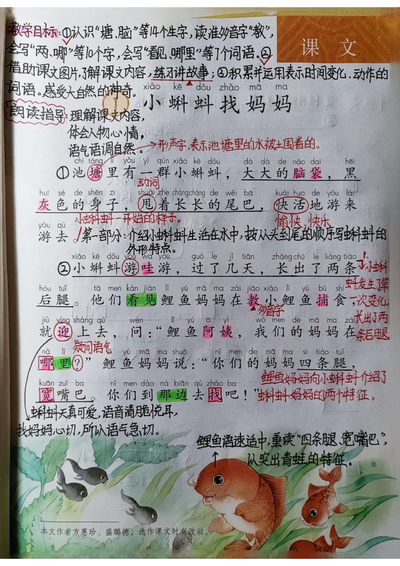 教学目标:①认识"塘、脑"等14个生字,读准多音字"教",
会写"两、哪"等10个字,会写"看见、哪里"等7个词语。②
借助课文图片,了解课文内容,练习讲故事;③积累并运用表示时间变化、动作的
词语,感受大自然的神奇。
课文
xiǎo kē dǒu zhǎo mā ma
1 小蝌蚪找妈妈
朗读指导:理解课文内容,
体会人物心情,
语气语调自然。
形声字,表示池塘里的水被土围着的。
chí táng lǐ yǒu yì qún xiǎo kē dǒu dà dà de nǎo dai hēi
①池塘里有一群小蝌蚪,大大的脑袋,黑
动词
huī sè de shēn zi shuǎi zhe cháng cháng de wěi ba kuài huó de yóu lái
灰色的身子,甩着长长的尾巴,快活地游来
小蝌蚪一开始的样子。
愉快、快乐
yóu qù
游去。
第一部分:介绍小蝌蚪生活在水中,按从头至尾的顺序写蝌蚪的
外形特点。
xiǎo kē dǒu yóu wa yóu guò le jǐ tiān zhǎng chū le liǎng tiáo
②小蝌蚪游哇游,过了几天,长出了两条
小蝌蚪发生了第一次变化,长出了两条后腿
hòu tuǐ tā men kàn jiàn lǐ yú mā ma zài jiāo xiǎo lǐ yú bǔ shí
后腿。他们看见鲤鱼妈妈在教小鲤鱼捕食,
多音字
jiù yíng shàng qù wèn lǐ yú ā yí wǒ men de mā ma zài
就迎上去,问:"鲤鱼阿姨,我们的妈妈在
疑问语气
nǎ lǐ lǐ yú mā ma shuō nǐ men de mā ma sì tiáo tuǐ
哪里?"鲤鱼妈妈说:"你们的妈妈四条腿,
kuān zuǐ ba nǐ men dào nà biān qù zhǎo ba
宽嘴巴。你们到那边去找吧!"
鲤鱼妈妈向小蝌蚪介绍了
蝌蚪妈妈的两个特征。
蝌蚪天真可爱,语音清脆悦耳,
找妈妈心切,所以语气急切。
鲤鱼语速适中,重读"四条腿、宽嘴巴",
以突出青蛙的特征。
本文作者方惠珍、盛璐德,选作课文时有改动。